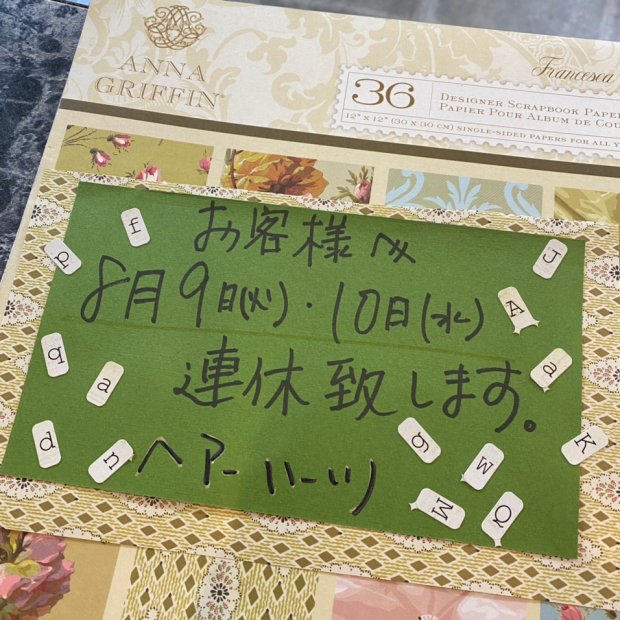 ANNA
GRIFFIN
Francesca
36
DESIGNER SCRAPBOOK PAPER
PAPIER POUR ALBUM DE COU
12" x 12" (30 x 30 cm) SINGLE-SIDED PAPERS FOR ALL Y
お客様へ
8月9日(火)・10日(水)
連休致します。
ヘアーハーツ
f
p
q
a
d
n
J
A
a
K
g
W
M
Q